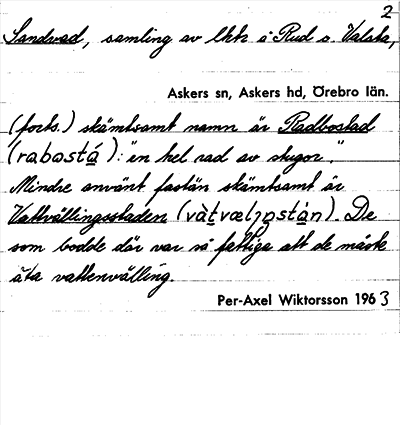 2
Sandvad, samling av lhh å Rud o. Valsta,
Askers sn, Askers hd, Örebro län.
(forts.) skämtsamt namn är Radbostad
(rabostá): "en hel rad av stugor".
Mindre använt fastän skämtsamt är
Vattvällingsstaden (vàtvælıŋstán). De
som bodde där var så fattiga att de måste
äta vattenvälling.
Per-Axel Wiktorsson 1963